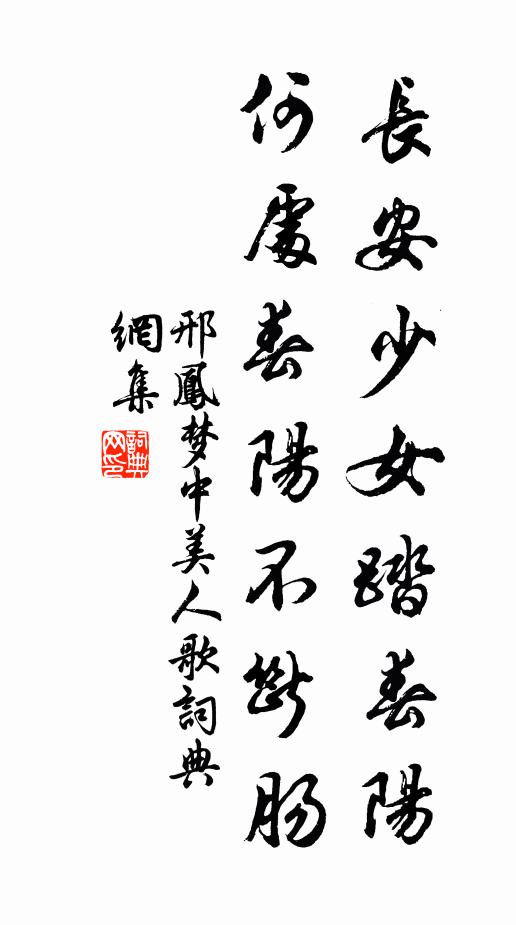 長安少女踏春陽
何處春陽不斷腸
邢鳳梦中美人歌詞典
網集
詞典网印